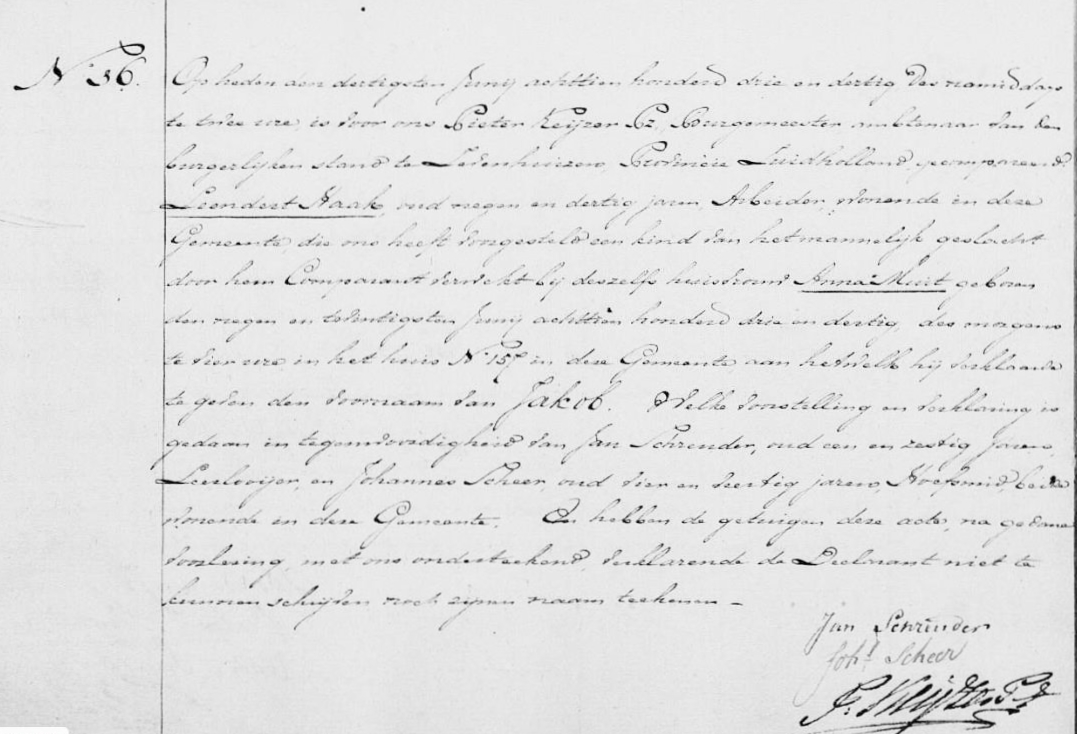 N.º 36.
Op heden den dertigsten Junij achttien honderd drie en dertig, des namiddags
te twee ure, is voor ons Pieter Keijzer Pz., Burgemeester ambtenaar van den
burgerlijken stand te Zevenhuizen, Provincie Zuidholland, gecompareerd
Leendert Haak, oud negen en dertig jaren, Arbeider, wonende in deze
Gemeente, die ons heeft voorgesteld een kind van het mannelijk geslacht
door hem Comparant verwekt bij deszelfs huisvrouw Anna Muit geboren
den negen en twintigsten Junij achttien honderd drie en dertig, des morgens
te vier ure in het huis N.º 157 in deze Gemeente, aan hetwelk hij verklaarde
te geven den voornaam van Jakob. Welke voorstelling en verklaring is
gedaan in tegenwoordigheid van Jan Schreuder, oud een en zestig jaren,
en Johannes Scheer, oud vier en veertig jaren, Hoefsmid, beide
wonende in deze Gemeente. En hebben de getuigen deze acte, na gedane
voorlezing, met ons onderteekend, verklarende de Declarant niet te
kunnen schrijven noch zijnen naam teekenen –
Jan Schreuder
Joh.s Scheer
P. Keijzer Pz